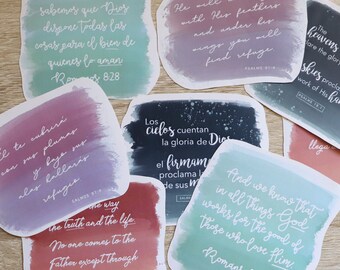 sabemos que Dios
dispone todas las
cosas para el bien de
quienes lo aman.
Romanos 8:28
He will
with His feathers
and under his
wings you will
find refuge.
PSALMS 91:4
the
heavens
are the glory
skies
proclaim
work of His
PSALMS 19:1
Él te cubrirá
con sus plumas
y bajo sus
alas hallarás
refugio.
SALMO 91:4
Los
cielos cuentan
la gloria de Dios,
el
firmamento
proclama la
de sus
llega
And we know that
in all things God
works for the good of
those who love Him.
the way
the truth and the life.
No one comes to the
Father except through